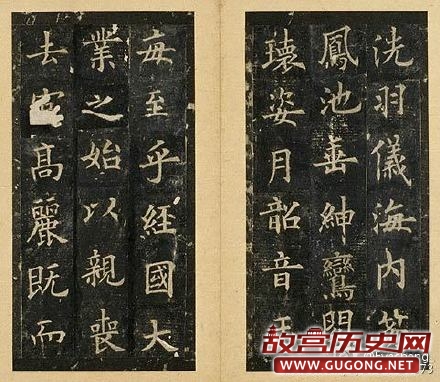 洗羽儀海內
鳳池垂紳鸞
瓌姿月韶音
毎至乎經國大
業之始以親喪
去
高麗既而
故宫历史网
WWW.GUGONG.NET
73